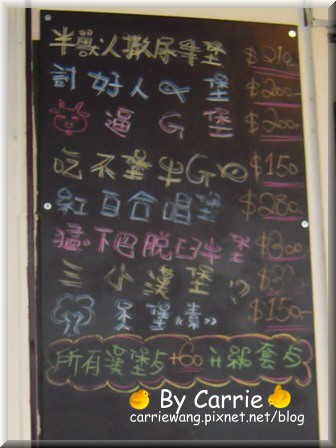 半獸人撒尿牛堡 $210
討好人α堡 $200
逼G堡 $200
吃不墮牛G $150
紅百合唱堡 $280
猛下巴脫臼半堡 $300
三小漢堡
堡《素》 $150
所有漢堡与+60升級套与
By Carrie
carriewang.pixnet.net/blog